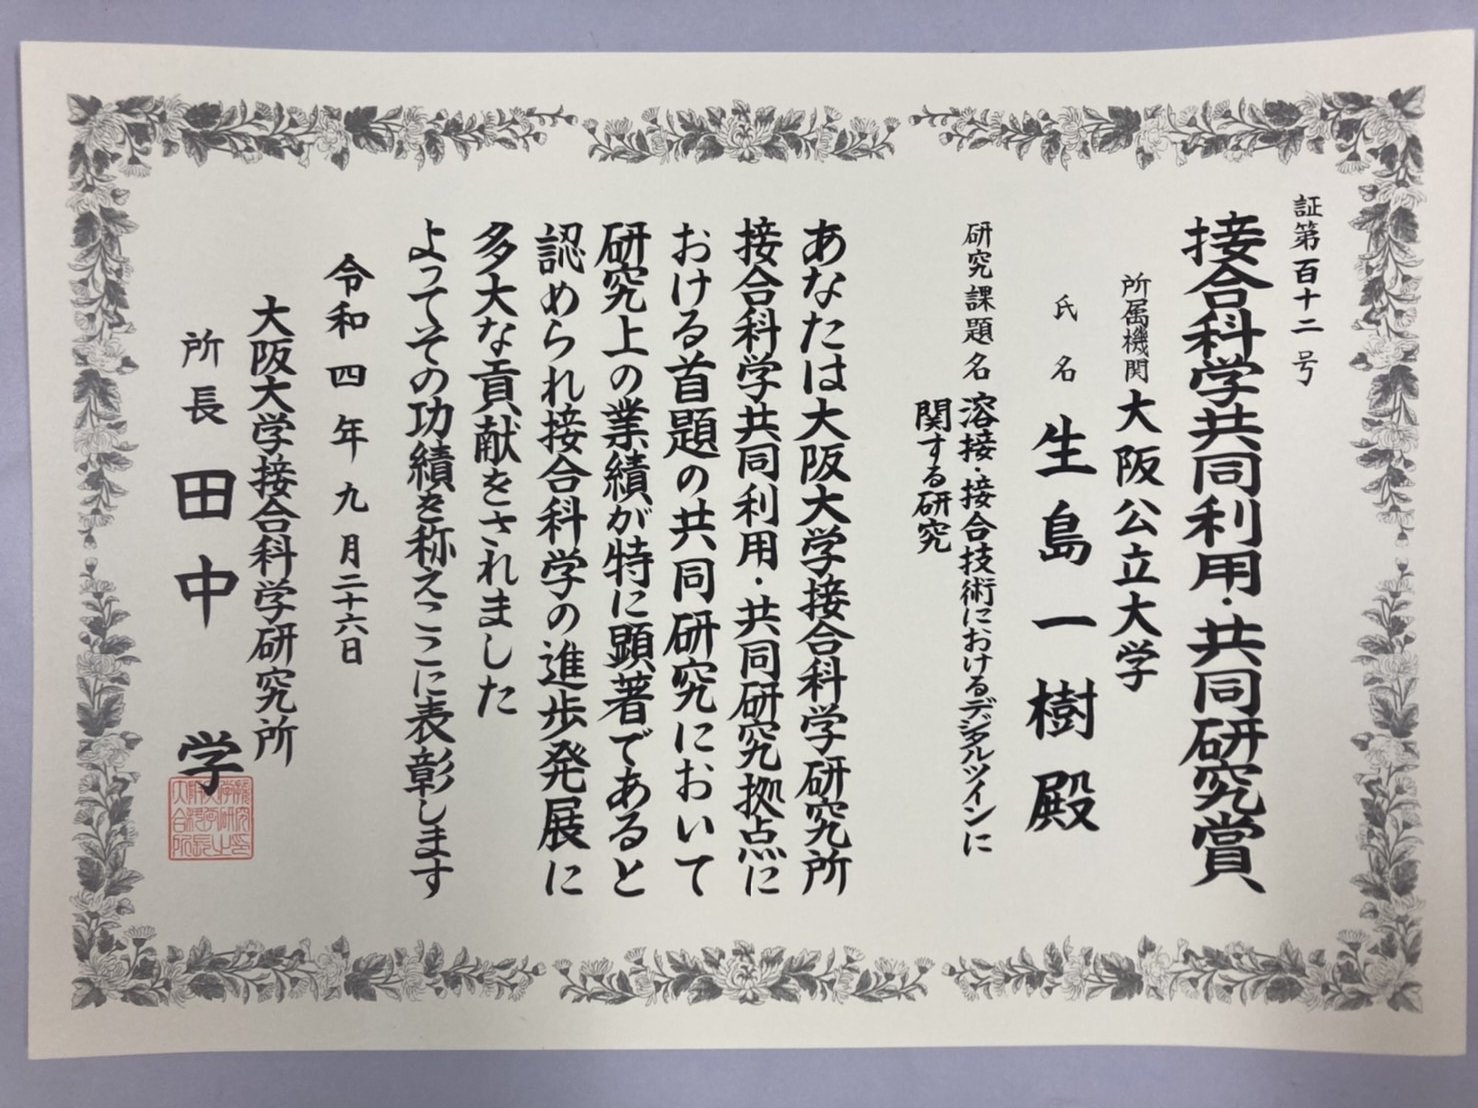 証第百十二号
接合科学共同利用・共同研究賞
所属機関 大阪公立大学
氏名 生島一樹殿
研究課題名 溶接・接合技術におけるデジタルツインに
関する研究
あなたは大阪大学接合科学研究所
接合科学共同利用・共同研究拠点に
おける首題の共同研究において
研究上の業績が特に顕著であると
認められ接合科学の進歩発展に
多大な貢献をされました
よってその功績を称えここに表彰します
令和四年九月二十六日
大阪大学接合科学研究所
所長 田中 学